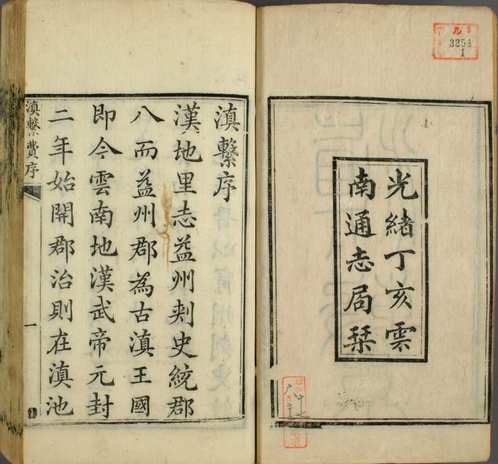 光緒丁亥雲
南通志局栞
滇繫序
漢地里志益州刾史統郡
八而益州郡為古滇王國
即今雲南地漢武帝元封
二年始開郡治則在滇池
滇繫費序
一
3254
1